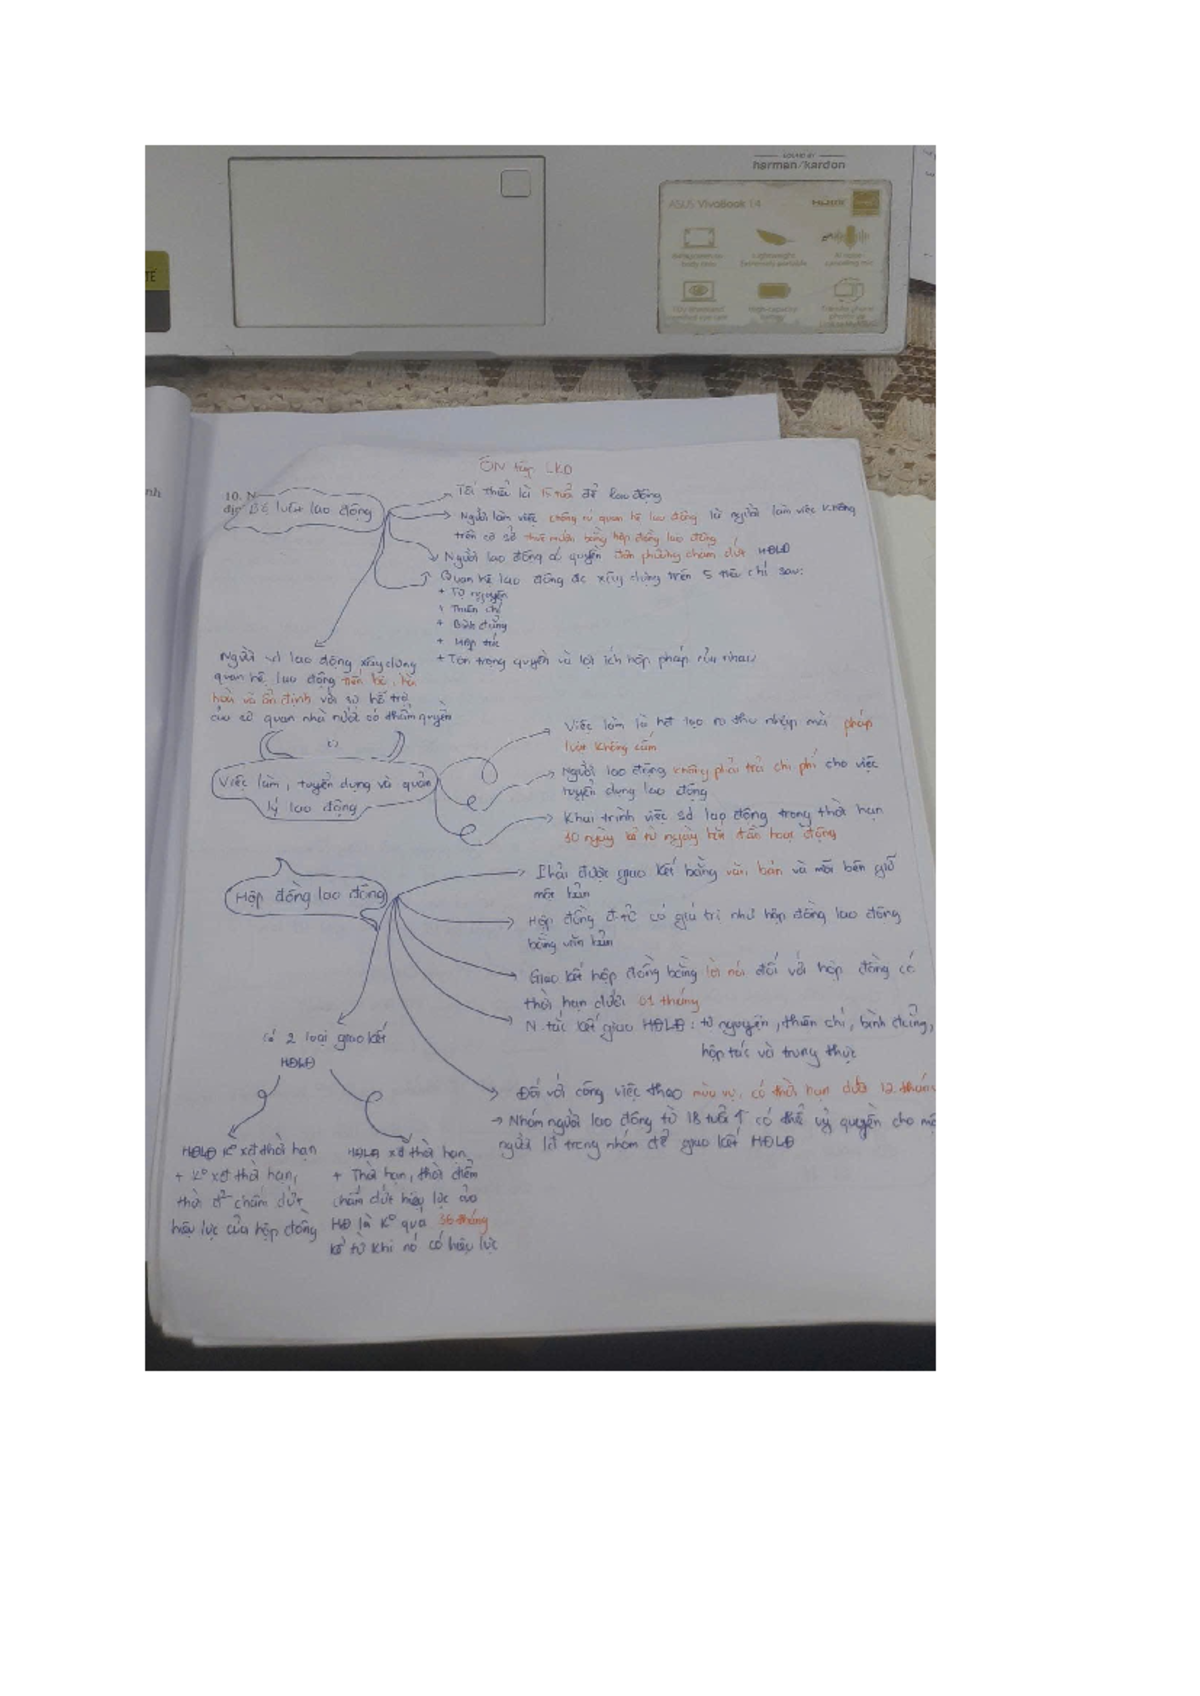 SOUND BY
harman/kardon
ASUS VivoBook 14
HDMI
Lightweight
Extremely portable
High-capacity
battery
nh
ÔN tập LLĐ
10. N
lao động
Tối thiểu là 15 tuổi để lao động
Người làm việc không có quan hệ lao động là người làm việc không
trên cơ sở thuê mướn bằng hợp đồng lao động
Người lao động có quyền đơn phương chấm dứt HĐLĐ
Quan hệ lao động đc xây dựng trên 5 tiêu chí sau:
+ Tự nguyện
+ Thiện chí
+ Bình đẳng
+ Hợp tác
+ Tôn trọng quyền và lợi ích hợp pháp của nhau
Người sd lao động xây dựng
quan hệ lao động tiến bộ, hài
hoà và ổn định với sự hỗ trợ
của cơ quan nhà nước có thẩm quyền
Việc làm, tuyển dụng và quản
lý lao động
Việc làm là hđ tạo ra thu nhập mà pháp
luật không cấm
Người lao động không phải trả chi phí cho việc
tuyển dụng lao động
Khai trình việc sd lao động trong thời hạn
30 ngày kể từ ngày bắt đầu hoạt động
Hợp đồng lao động
Phải được giao kết bằng văn bản và mỗi bên giữ
một bản
Hợp đồng đ.tử có giá trị như hợp đồng lao động
bằng văn bản
Giao kết hợp đồng bằng lời nói đối với hợp đồng có
thời hạn dưới 01 tháng
N. tắc kết giao HĐLĐ: tự nguyện, thiện chí, bình đẳng,
hợp tác và trung thực
Có 2 loại giao kết
HĐLĐ
Đối với công việc theo mùa vụ, có thời hạn dưới 12 tháng
→ Nhóm người lao động từ 18 tuổi ↑ có thể uỷ quyền cho
người lđ trong nhóm để giao kết HĐLĐ
HĐLĐ K° xđ thời hạn
+ K° xđ thời hạn,
thời đ² chấm dứt
hiệu lực của hợp đồng
HĐLĐ xđ thời hạn
+ Thời hạn, thời điểm
chấm dứt hiệu lực của
HĐ là K° quá 36 tháng
kể từ khi nó có hiệu lực